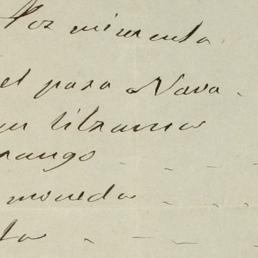 Por mi cuenta
el paso Nava
un libramo
rango
moneda
ta